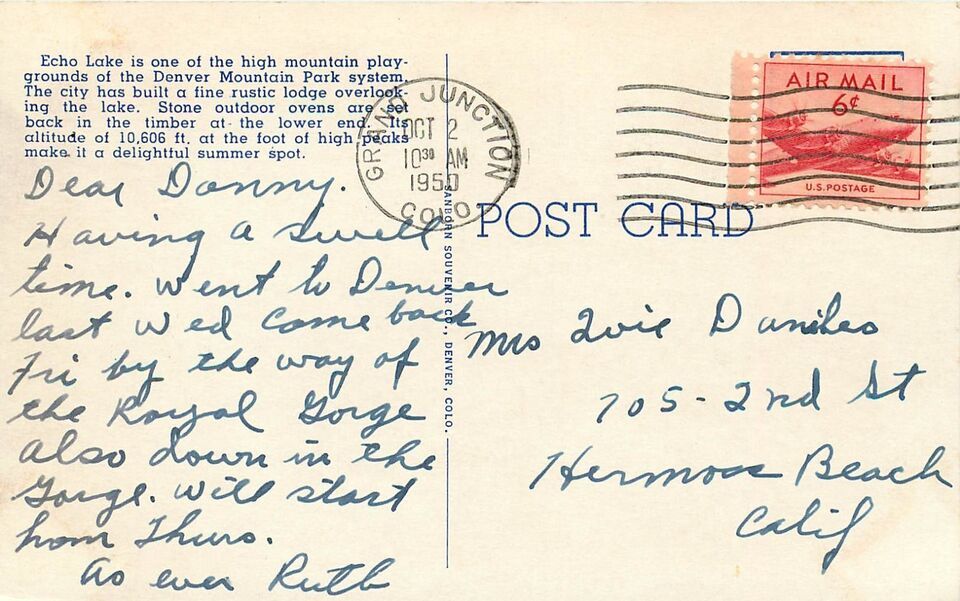 Echo Lake is one of the high mountain play-
grounds of the Denver Mountain Park system.
The city has built a fine rustic lodge overlook-
ing the lake. Stone outdoor ovens are set
back in the timber at the lower end. Its
altitude of 10,606 ft. at the foot of high peaks
make it a delightful summer spot.
GRAND JUNCTION
OCT 2
10 30 AM
1950
COLO
AIR MAIL
6¢
U.S. POSTAGE
POST CARD
SANBORN SOUVENIR CO., DENVER, COLO.
Dear Danny.
Having a swell
time. Went to Denver
last Wed Come back
Fri by the way of
the Royal Gorge
also down in the
Gorge. Will start
hom Thurs.
As ever Ruth
Mrs
705-2nd St
Hermosa Beach
Calif